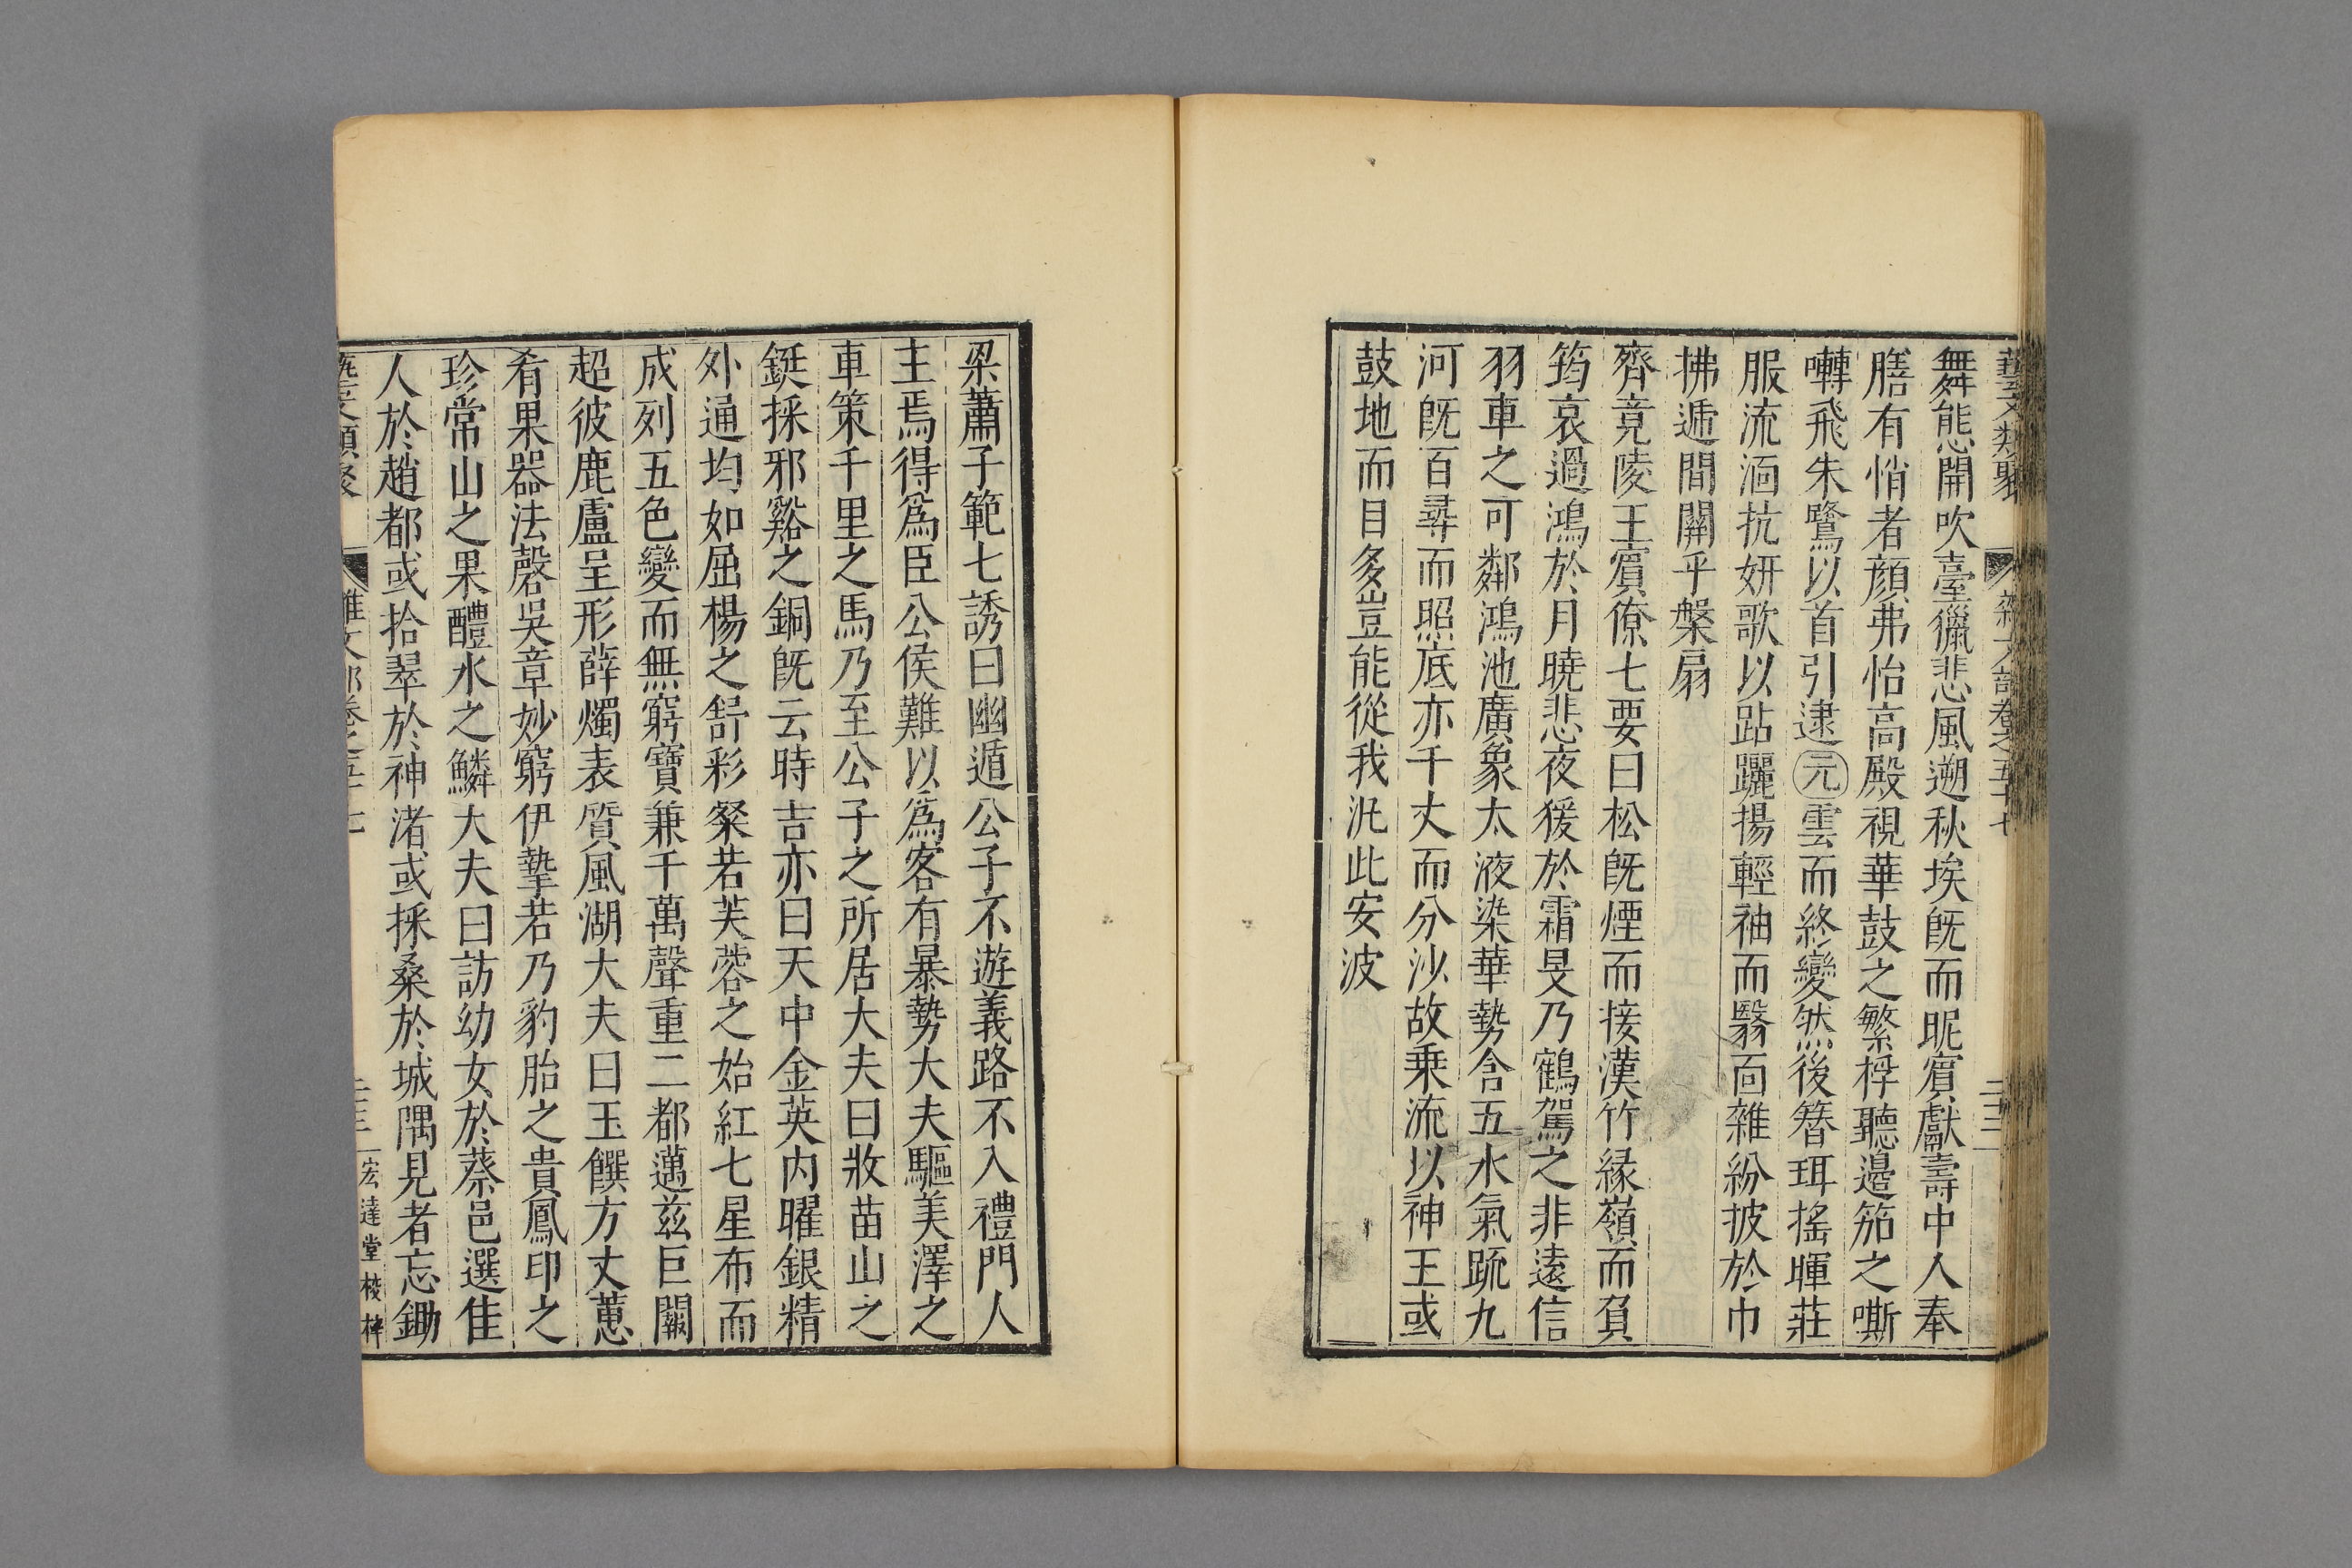 藝文類聚 雜文部卷之五十七 二十三
舞態開吹臺獵悲風遡秋埃旣而昵賓獻壽中人奉
膳有悄者顏弗怡高殿視華鼓之繁桴聽邊笳之嘶
囀飛朱鷺以首引逮元雲而終變然後簪珥搖暉莊
服流湎抗妍歌以跕躧揚輕袖而翳靣雜紛披於巾
拂遞間關乎槃扇
齊竟陵王賓僚七要曰松旣煙而接漢竹緣嶺而負
筠哀過鴻於月曉悲夜猨於霜旻乃鶴駕之非遠信
羽車之可鄰鴻池廣象太液染華勢含五水氣跞九
河旣百尋而照底亦千丈而分沙故乗流以神王或
鼓地而目多豈能從我汎此安波
梁蕭子範七誘曰幽遁公子不遊義路不入禮門人
主焉得爲臣公侯難以爲客有暴勢大夫驅美澤之
車策千里之馬乃至公子之所居大夫曰牧苗山之
鋌採邪谿之銅旣云時吉亦曰天中金英内曜銀精
外通均如屈楊之舒彩粲若芙蓉之始紅七星布而
成列五色變而無窮寶兼千萬聲重二都邁兹巨闕
超彼鹿盧呈形薛燭表質風湖大夫曰玉饌方丈蕙
肴果器法磬吳章妙窮伊摯若乃豹胎之貴鳳印之
珍常山之果醴水之鱗大夫曰訪幼女於蔡邑選佳
人於趙都或拾翠於神渚或採桑於城隅見者忘鋤
藝文類聚 雜文部卷之五十七 二十三 宏達堂校梓